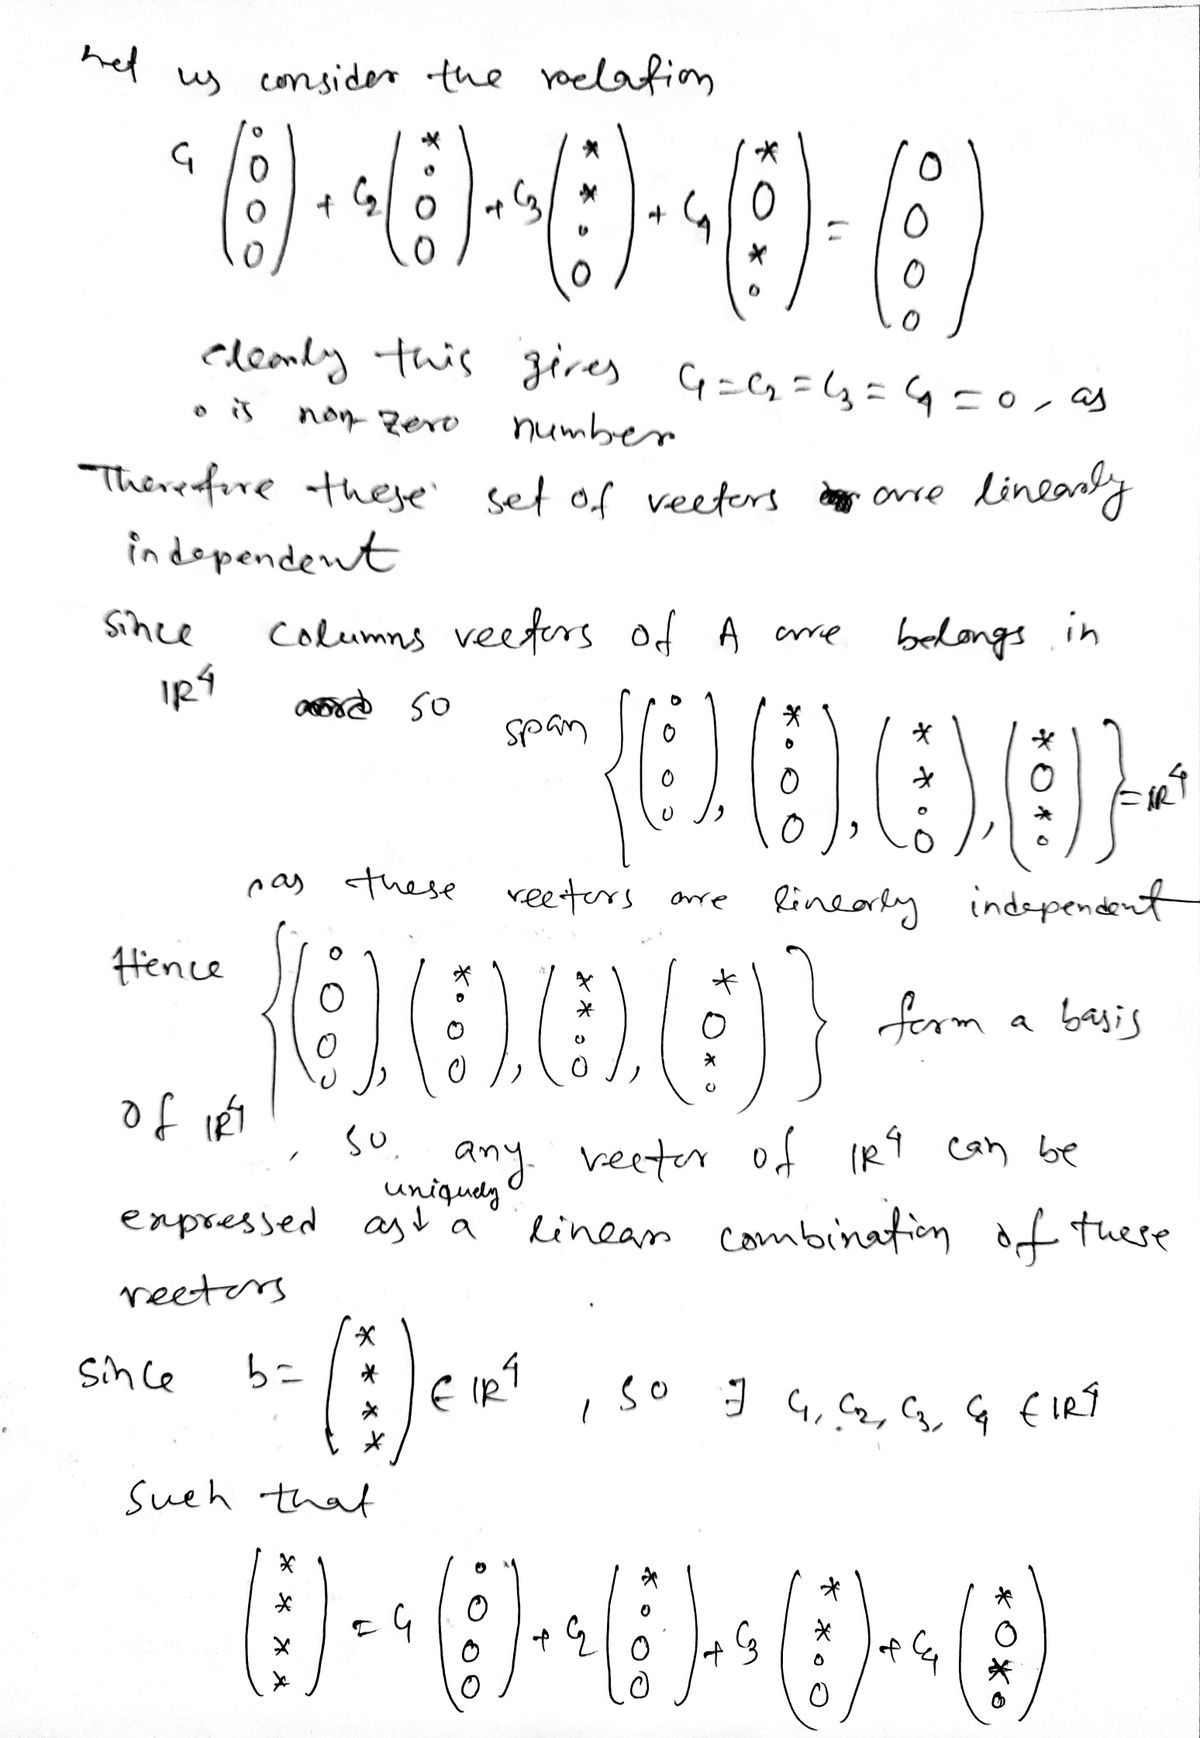 Let us consider the relation
C₁ (∘ 0 0 0) + C₂ (* ∘ 0 0) + C₃ (* * ∘ 0) + C₄ (* 0 * ∘) = (0 0 0 0)
clearly this gives C₁ = C₂ = C₃ = C₄ = 0, as
∘ is non-zero number
Therefore these set of vectors are linearly
independent
Since columns vectors of A are belongs in
ℝ⁴ so span {(∘ 0 0 0), (* ∘ 0 0), (* * ∘ 0), (* 0 * ∘)} = ℝ⁴
, as these vectors are linearly independent
Hence {(∘ 0 0 0), (* ∘ 0 0), (* * ∘ 0), (* 0 * ∘)} form a basis
of ℝ⁴, so, any vector of ℝ⁴ can be
uniquely
expressed as ↓ a linear combination of these
vectors
Since b = (* * * *) ∈ ℝ⁴, so ∃ C₁, C₂, C₃, C₄ ∈ ℝ⁴
such that
(* * * *) = C₁ (∘ 0 0 0) + C₂ (* ∘ 0 0) + C₃ (* * ∘ 0) + C₄ (* 0 * ∘)